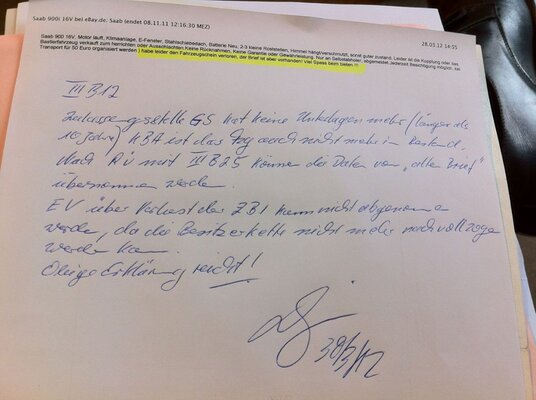 Saab 900i 16V bei eBay.de, Saab (endet 08.11.11 12:16:30 MEZ)
28.03.12 14:55
Saab 900 16V, Motor läuft, Klimaanlage, E-Fenster, Stahlschiebedach, Batterie Neu, 2-3 kleine Roststellen, Himmel hängt/verschmutzt, sonst guter zustand. Leider ist die Kupplung oder das
Bastlerfahrzeug verkauft zum herrichten oder Ausschlachten. Keine Rücknahmen, Keine Garantie oder Gewährleistung. Nur an Selbstabholer, abgemeldet. Jederzeit Besichtigung möglich.
Transport für 50 Euro organisiert werden. I habe leider den Fahrzeugschein verloren, der Brief ist aber vorhanden! Viel Spass beim bieten !!!
III B12
Zulassungsstelle GS hat keine Unterlagen mehr (länger als
10 Jahre) KBA ist das Fzg auch nicht mehr im Bestand.
Nach Rü mit III B25 können die Daten vom "alten Brief"
übernommen werden.
EV über Verlust der ZB1 kann nicht abgenomme
werden, da die Besitzerkette nicht mehr nachvollzogen
werden kann.
Obige Erklärung reicht!
30/3/12